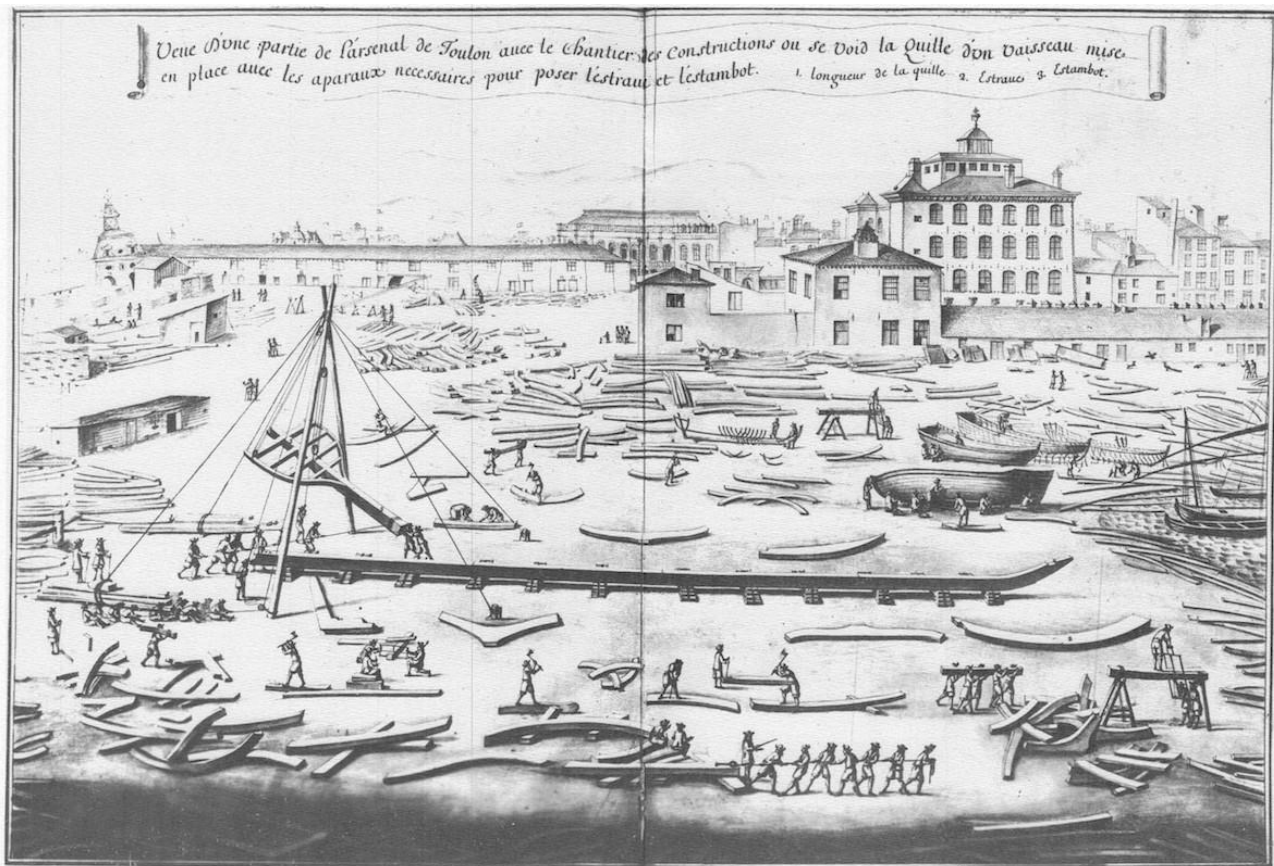 Veue D'vne partie de L'arsenal de Toulon auec le Chantier des Constructions ou se Void la Quille d'vn Vaisseau mise
en place auec les aparaux necessaires pour poser l'estraue et l'estambot. 1. longueur de la quille 2. Estraue 3. Estambot.